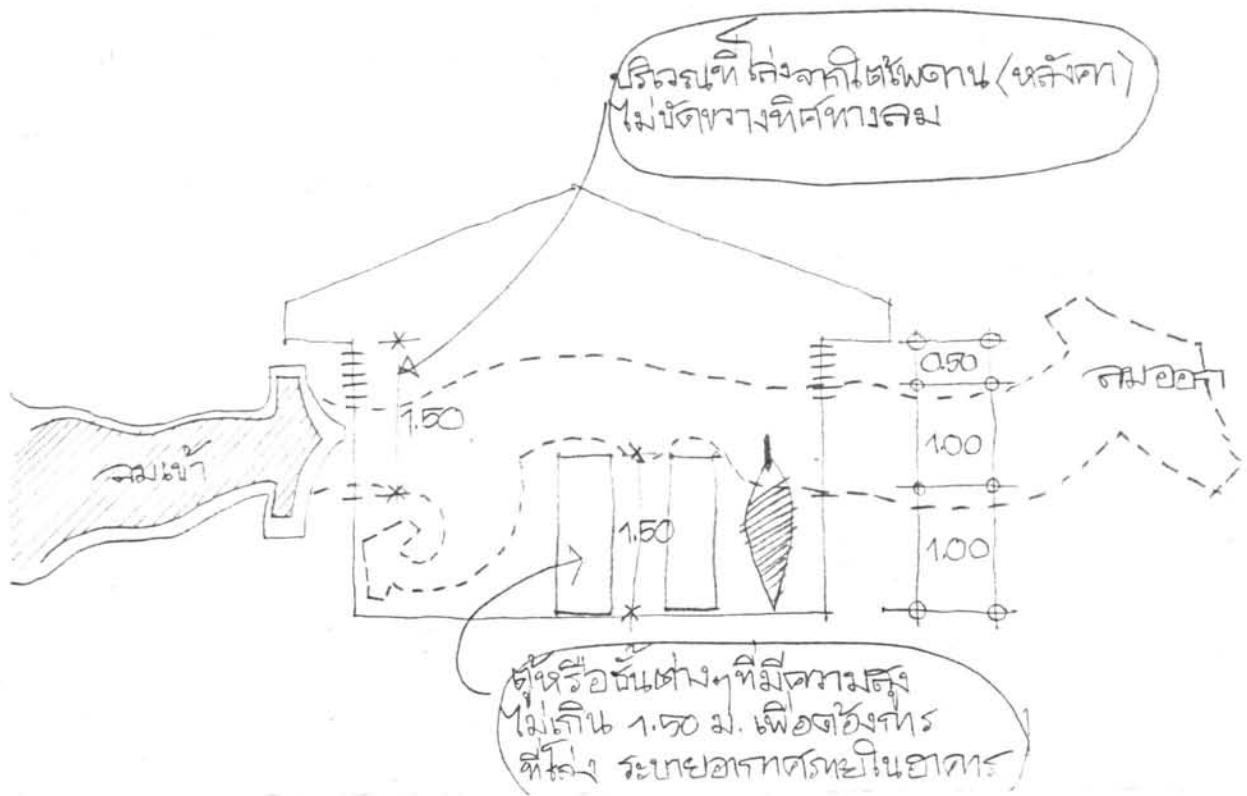 บริเวณที่โล่งจากใต้เพดาน (หลังคา)
ไม่ขัดขวางทิศทางลม
0.50
ลมออก
1.50
1.00
ลมเข้า
1.50
1.00
ตู้หรือชั้นต่างๆที่มีความสูง
ไม่เกิน 1.50 ม. เพื่อต้องการ
ที่โล่ง ระบายอากาศภายในอาคาร